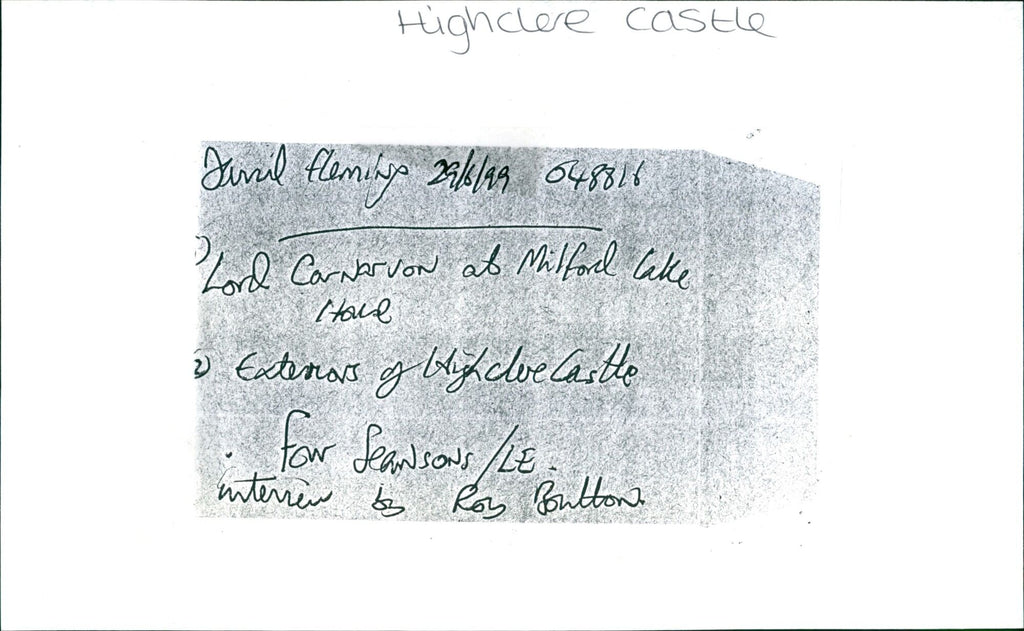 Highclere Castle
Fleming 29/6/99 048816
1) Lord Carnarvon at Milford Lake
House
2) Exteriors of Highclere Castle
Four Seansons/LE.
interview by Roy Boulton.